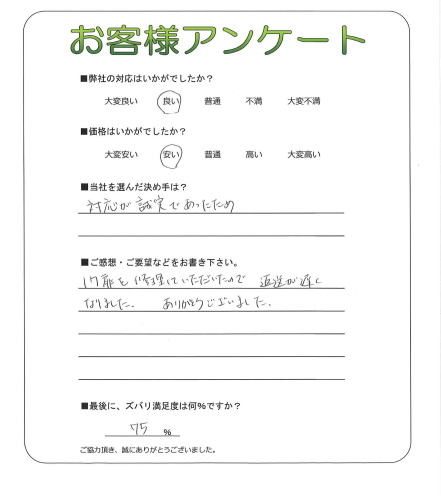 お客様アンケート
■弊社の対応はいかがでしたか？
大変良い 良い 普通 不満 大変不満
■価格はいかがでしたか？
大変安い 安い 普通 高い 大変高い
■当社を選んだ決め手は？
対応が誠実であったため
■ご感想・ご要望などをお書き下さい。
を修理していただいたので 返送が遅く
なりました． ありがとうございました．
■最後に、ズバリ満足度は何％ですか？
75 ％
ご協力頂き、誠にありがとうございました。